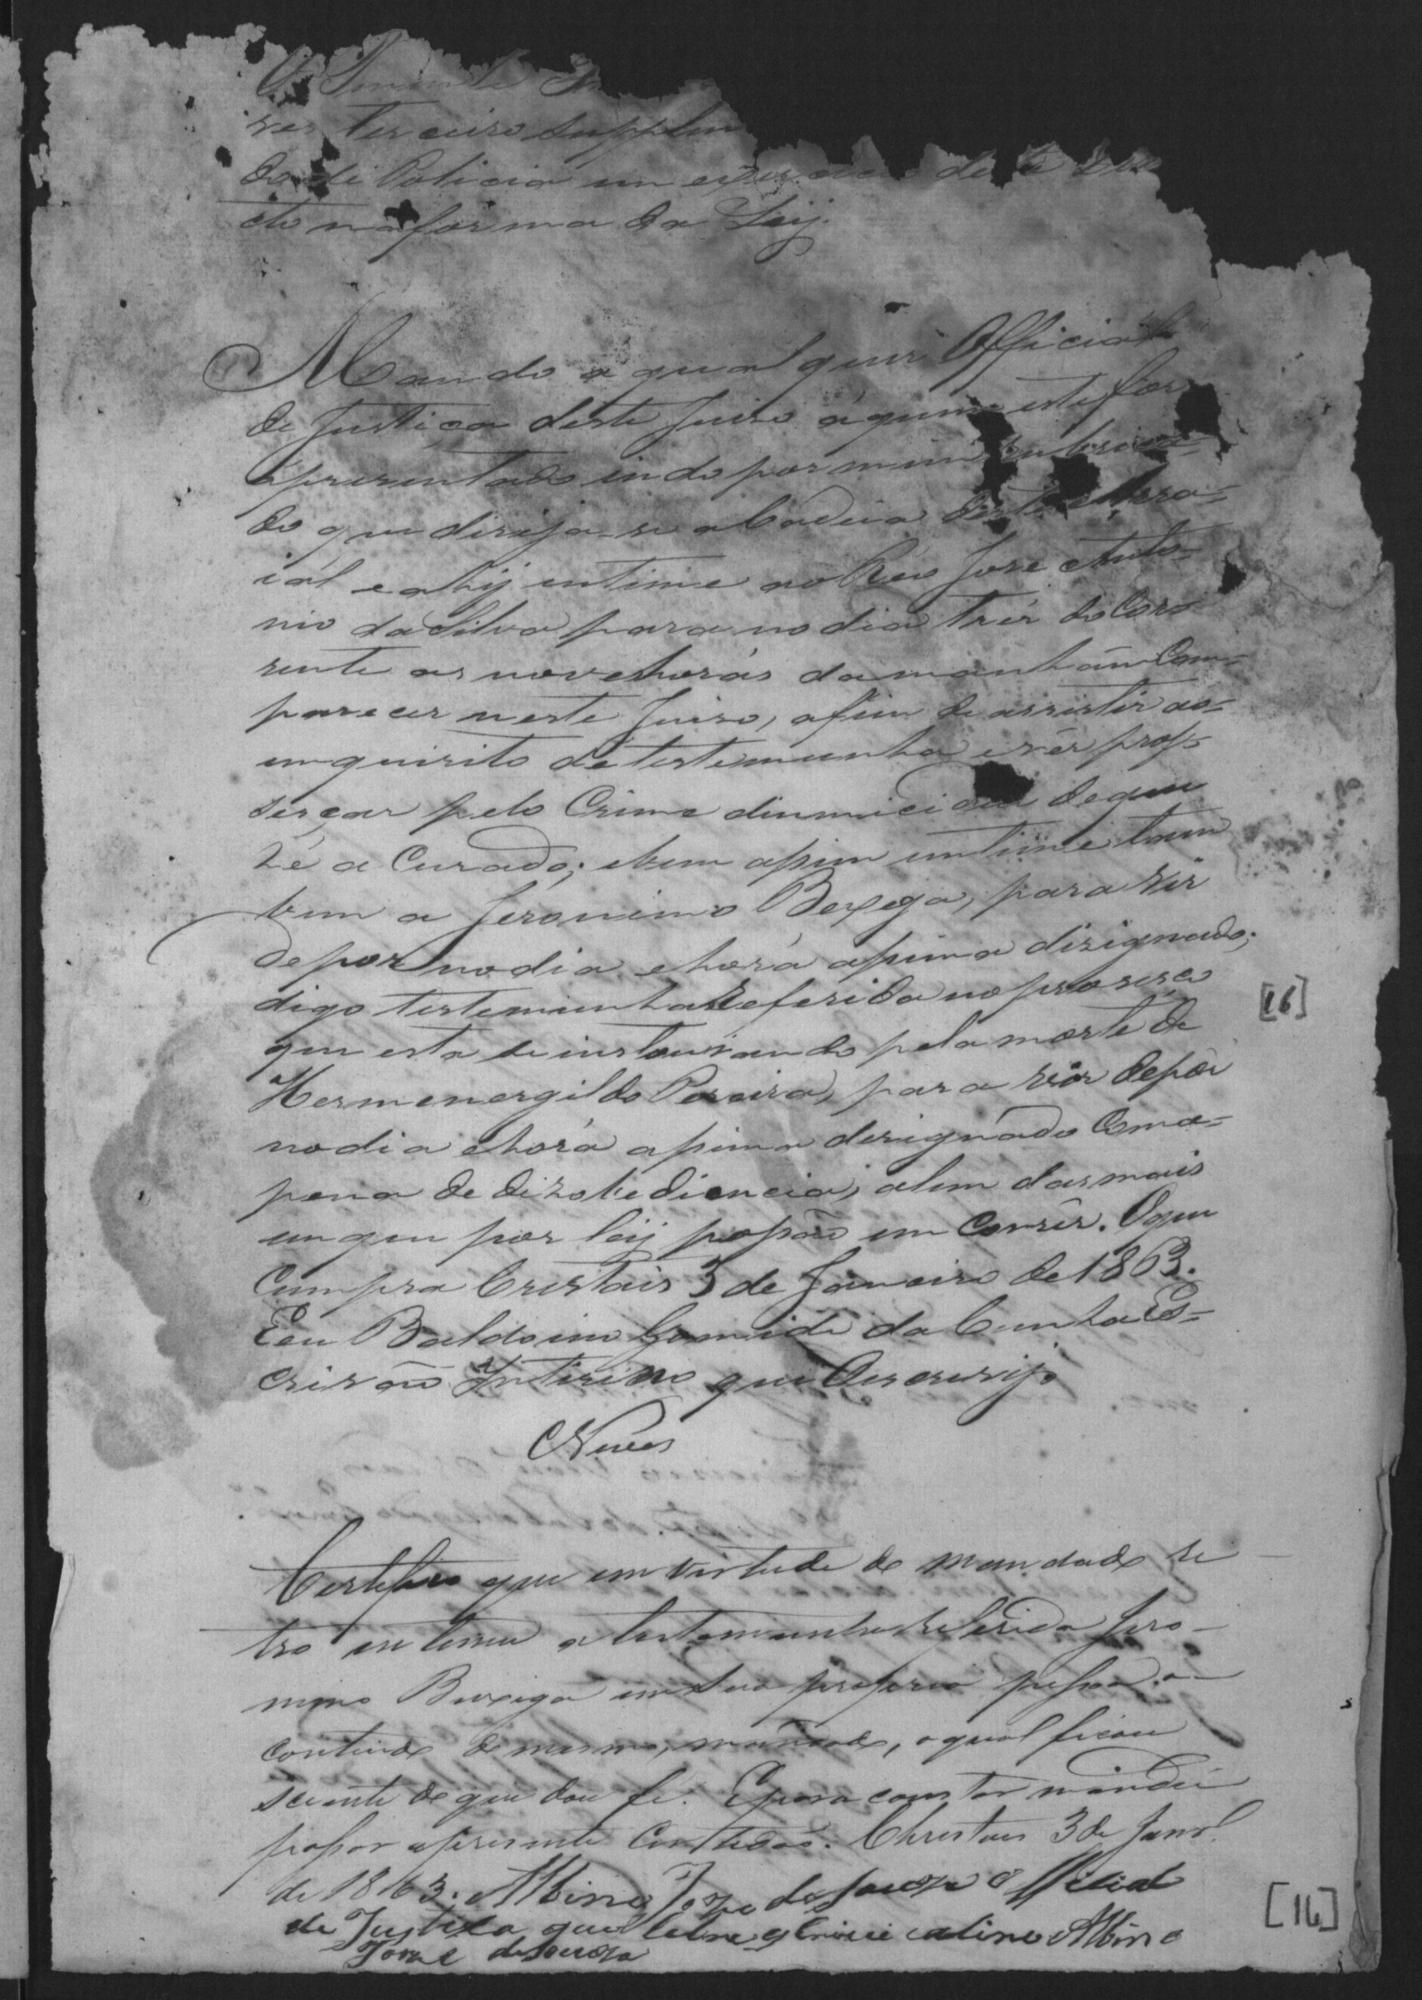 O Tenente
res terceiro supplen
do de Policia em exercicio deste Dis
cto na forma da Leij.
Mando a qual quer Official
de Justiça deste Juizo á quem este for
apresentado indo por mim rubrica-
do que dirija-se a Cadeia deste Arra-
ial e ahij intime ao Reo José Anto-
nio da Silva para no dia trez do Corr
rente as nove horas da manhãm Com-
parecer neste Juizo, afim de assistir ao-
inquirito de testemunha e vêr prop-
sersar pelo Crime dinmicidio de que
hé a Curado; e bem assim intime tam
bem a Jeronimo Bexega, para vir
depor no dia e hora assima dizignado;
digo testemunha referida no prosesso
que esta se instaurando pela morte de
Hermenergildo Pereira, para vir depôr
no dia e hora assima dezignado Com a-
pena de dizobediencia, alem das mais
em que por leij possão em Corrêr. O que
Cumpra Cristais 3 de Janeiro de 1863.
Eeu Baldoino Gomide da Cunha Es-
crivão Intirino que Oescrevij.
Neves
Certefico que em virtude de mandado re
tro intimei a testemunha referida Jero-
nimo Bexiga em sua propria pessoa o-
contiudo do mesmo mandado, o qual ficou
sciente de que dou fé. Epara constar mandei
passar apresente Certidão. Christais 3 de Janrº.
de 1863. Albino Joze de Souza Official
de Justica que esta
Albino
Joze de Souza
[16]
[16]